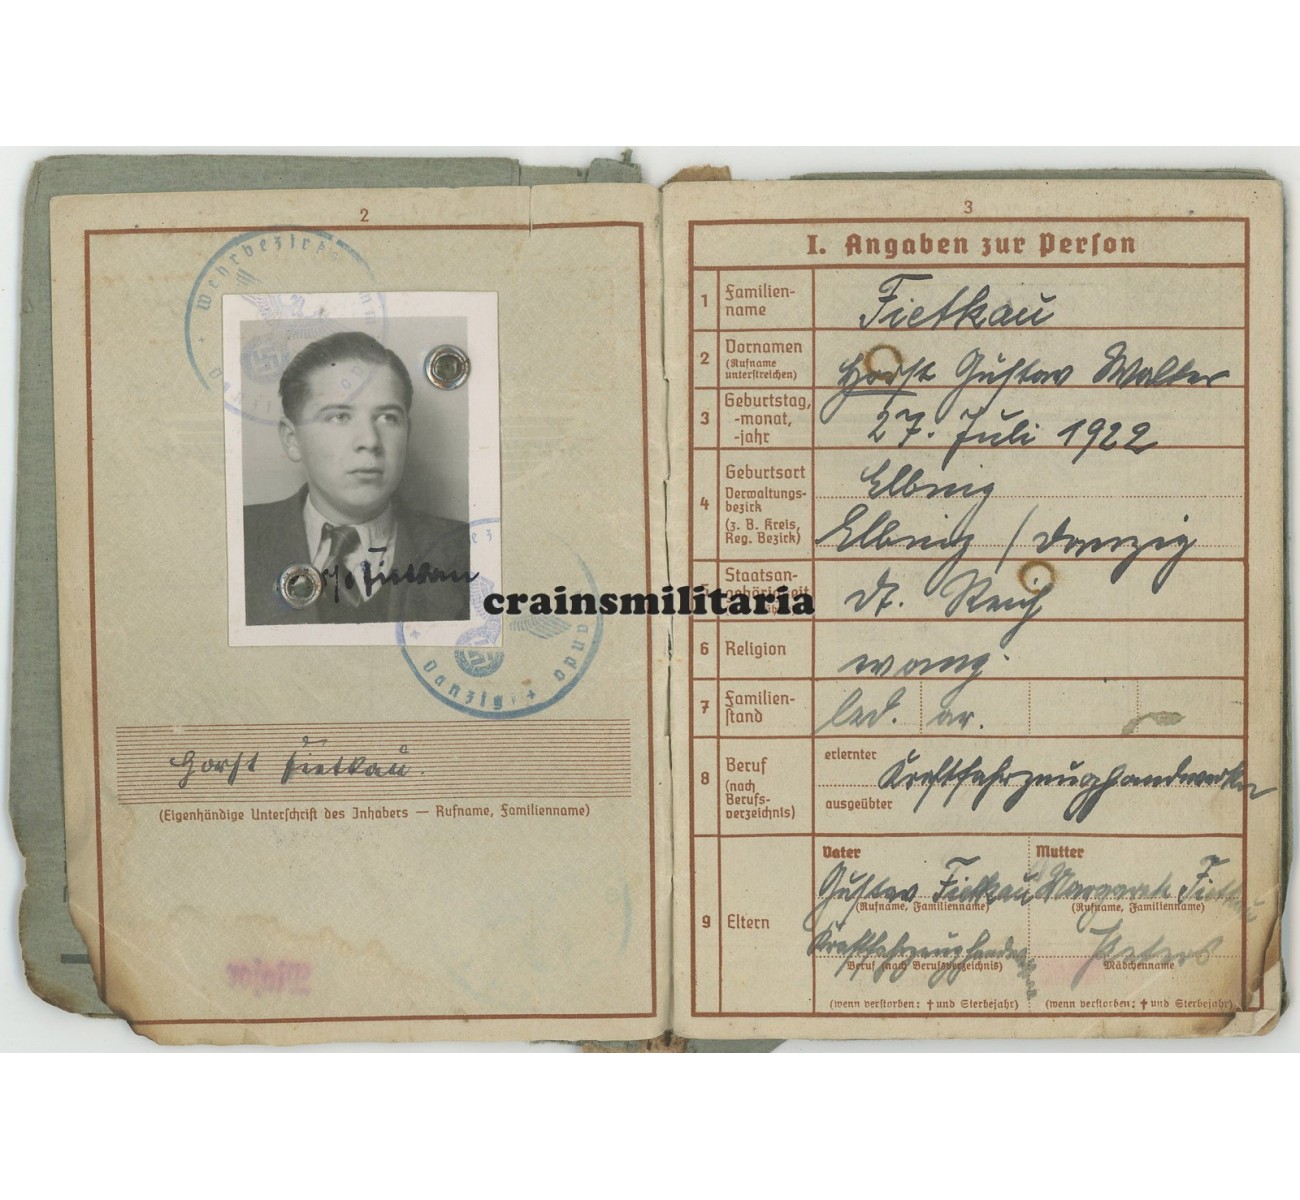 2
Wehrbezirks
Danzig
Horst Fietkau
Danzig
Horst Fietkau.
(Eigenhändige Unterschrift des Inhabers — Rufname, Familienname)
Major
3
I. Angaben zur Person
1 Familien-
name
Fietkau
2 Vornamen
(Rufname
unterstreichen)
Horst Gustav Walter
3 Geburtstag,
-monat,
-jahr
27. Juli 1922
4 Geburtsort
Verwaltungs-
bezirk
(z. B. Kreis,
Reg. Bezirk)
Elbing
Elbing / Danzig
5 Staatsan-
gehörigkeit
dt. Reich
crainsmilitaria
6 Religion
evang.
7 Familien-
stand
led. ar.
8 Beruf
(nach
Berufs-
verzeichnis)
erlernter
Kraftfahrzeughandwerker
ausgeübter
9 Eltern
Vater
Gustav Fietkau
(Rufname, Familienname)
Kraftfahrzeughandwerker
Beruf (nach Berufsverzeichnis)
(wenn verstorben: † und Sterbejahr)
Mutter
Margarete Fietkau
(Rufname, Familienname)
Peters
Mädchenname
(wenn verstorben: † und Sterbejahr)